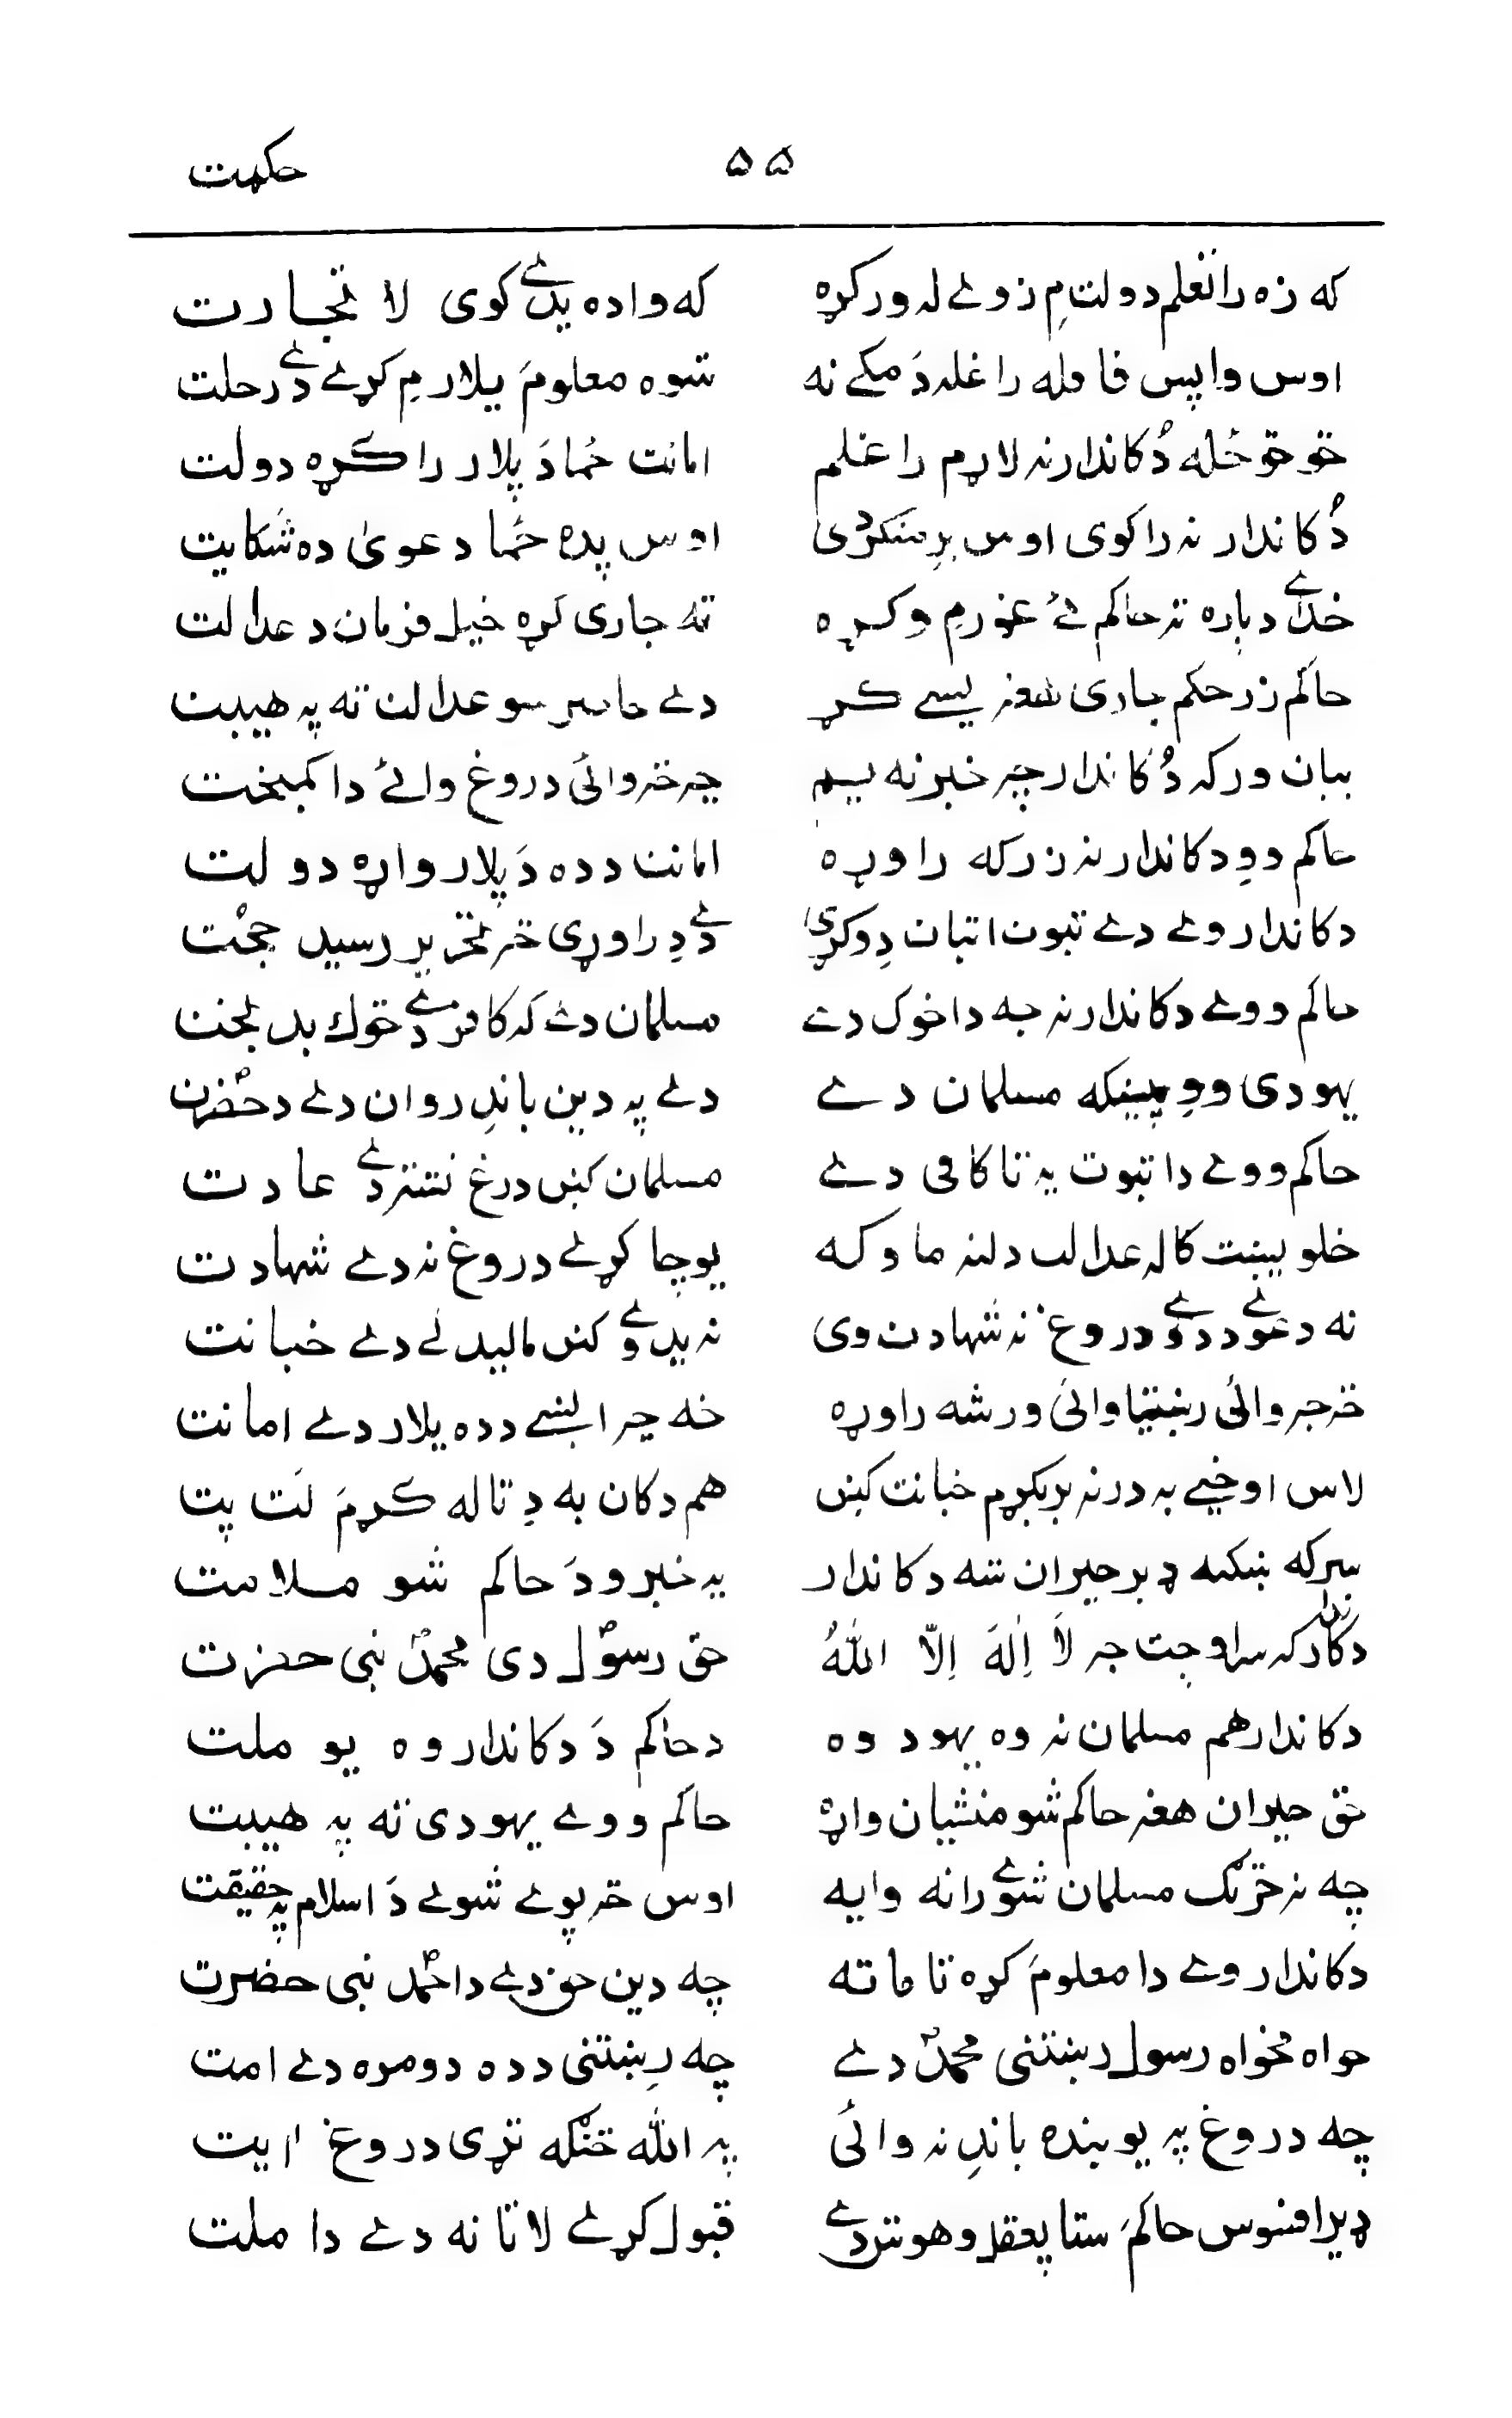 حکمت
۵۵
که زه راتغلم دولت مِ زوئے له ورکړه
که واده پدئے کوی لا تجارت
اوس واپس قافله راغله دَ مکے نه
شوه معلومَ پلار مِ کړے دے رحلت
څو څو ځله دُکاندار نه لاړم راغلم
امانت ځما دَ پلار راکړه دولت
دُکاندار نه راکوی اوس پرِ منکر دی
اوس پده ځما دعویٰ ده شکایت
خدائے دپاره ته حاکم ئے غور مِ وکړه
ته جاری کړه خپل فرمان د عدالت
حاکم زر حکم جاری هغه پسے کړ
دے حاضر سو عدالت ته په هیبت
بیان ورکه دُکاندار چه خبر نه یم
چه څه وائی دروغ وائے دا کمبخت
حاکم ووِ دکاندار نه زر که راوړه
امانت دده دَ پلار واړه دولت
دکاندار وے دے ثبوت اثبات دِ وکړی
دے دِ راوړی څه تحریر رسید حجت
حاکم ووے دکاندار نه چه دا څوک دے
مسلمان دے که کافر دے څوک بدبخت
یهودی ووِ مسلمان دے
دے په دین باندِ روان دے د حضرت
حاکم ووے دا ثبوت په تا کافی دے
مسلمان کښ درغ نشته دے عادت
یو چا کړے دروغ نه دے شهادت
نه دعوے ددوے دروغ نه شهادت وی
نه پدوے کښ مالیدلے دے خیانت
څه چه وائی رښتیا وائی ورشه راوړه
څه چه ایښے دده پلار دے امانت
لاس او خپے به درنه پریکړم خیانت کښ
هم دکان به دِ تاله کړمَ لټ پټ
سر که ښکته ډیر حیران شه دکاندار
په خبرو دَ حاکم شو ملامت
دکاندار که سراوچت چه لَا اِلٰهَ اِلّا اللّٰهُ
حق رسولؐ دی محمدؐ نبی حضرت
دکاندار هم مسلمان نه وه یهود وه
د حاکم دَ دکاندار وه یو ملت
حق حیران هغه حاکم شو منشیان واړه
حاکم ووے یهودی ته په هیبت
چه نه څرنګ مسلمان شوے راته وایه
اوس څه پوے شوے دَ اسلام په حقیقت
دکاندار وے دا معلومَ کړه تا ما ته
چه دین حق دے دا محمدؐ نبی حضرت
خواه مخواه رسول رښتنی محمدؐ دے
چه رِښتنی دده دومره دے امت
چه دروغ په یو بنده باندِ نه وائی
په اللّٰه څنګه تړی دروغ ایت
ډیر افسوس حاکمَ ستا په عقل و هوش دے
قبول کړے لا تا نه دے دا ملت